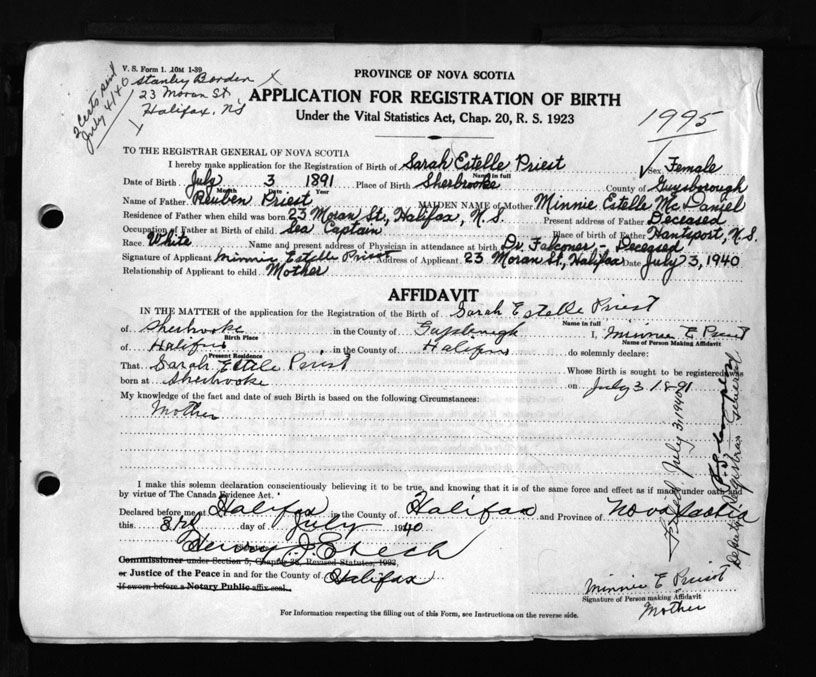 V. S. Form 1. 10M 1-39
2 Certs sent
July 4/40
Stanley Borden X
23 Moran St.,
Halifax, NS
PROVINCE OF NOVA SCOTIA
APPLICATION FOR REGISTRATION OF BIRTH
Under the Vital Statistics Act, Chap. 20, R. S. 1923
1995
TO THE REGISTRAR GENERAL OF NOVA SCOTIA
I hereby make application for the Registration of Birth of Sarah Estelle Priest Sex Female
Name in full
Date of Birth July 3 1891 Place of Birth Sherbrooke County of Guysborough
Month Date Year
Name of Father Reuben Priest MAIDEN NAME of Mother Minnie Estelle McDaniel
Residence of Father when child was born 23 Moran St., Halifax, N.S. Present address of Father Deceased
Occupation of Father at Birth of child Sea Captain Place of birth of Father Hantsport, N.S.
Race White Name and present address of Physician in attendance at birth Dr. Falconer - Deceased
Signature of Applicant Minnie Estelle Priest Address of Applicant 23 Moran St., Halifax Date July 3, 1940
Relationship of Applicant to child Mother
AFFIDAVIT
IN THE MATTER of the application for the Registration of the Birth of Sarah Estelle Priest
Name in full
of Sherbrooke in the County of Guysborough I, Minnie E Priest
Birth Place Name of Person Making Affidavit
of Halifax in the County of Halifax do solemnly declare:
Present Residence
That Sarah Estele Priest Whose Birth is sought to be registered was
born at Sherbrooke on July 3 1891
My knowledge of the fact and date of such Birth is based on the following Circumstances:
Mother
I make this solemn declaration conscientiously believing it to be true, and knowing that it is of the same force and effect as if made under oath and
by virtue of The Canada Evidence Act.
Declared before me at Halifax in the County of Halifax and Province of Nova Scotia
this 3rd day of July 1940
Commissioner under Section 5, Chapter 38, Revised Statutes, 1923,
or Justice of the Peace in and for the County of Halifax
If sworn before a Notary Public affix seal.
Minnie E Priest
Signature of Person making Affidavit
Mother
Filed July 3 1940
Deputy Registrar General
For Information respecting the filling out of this Form, see Instructions on the reverse side.